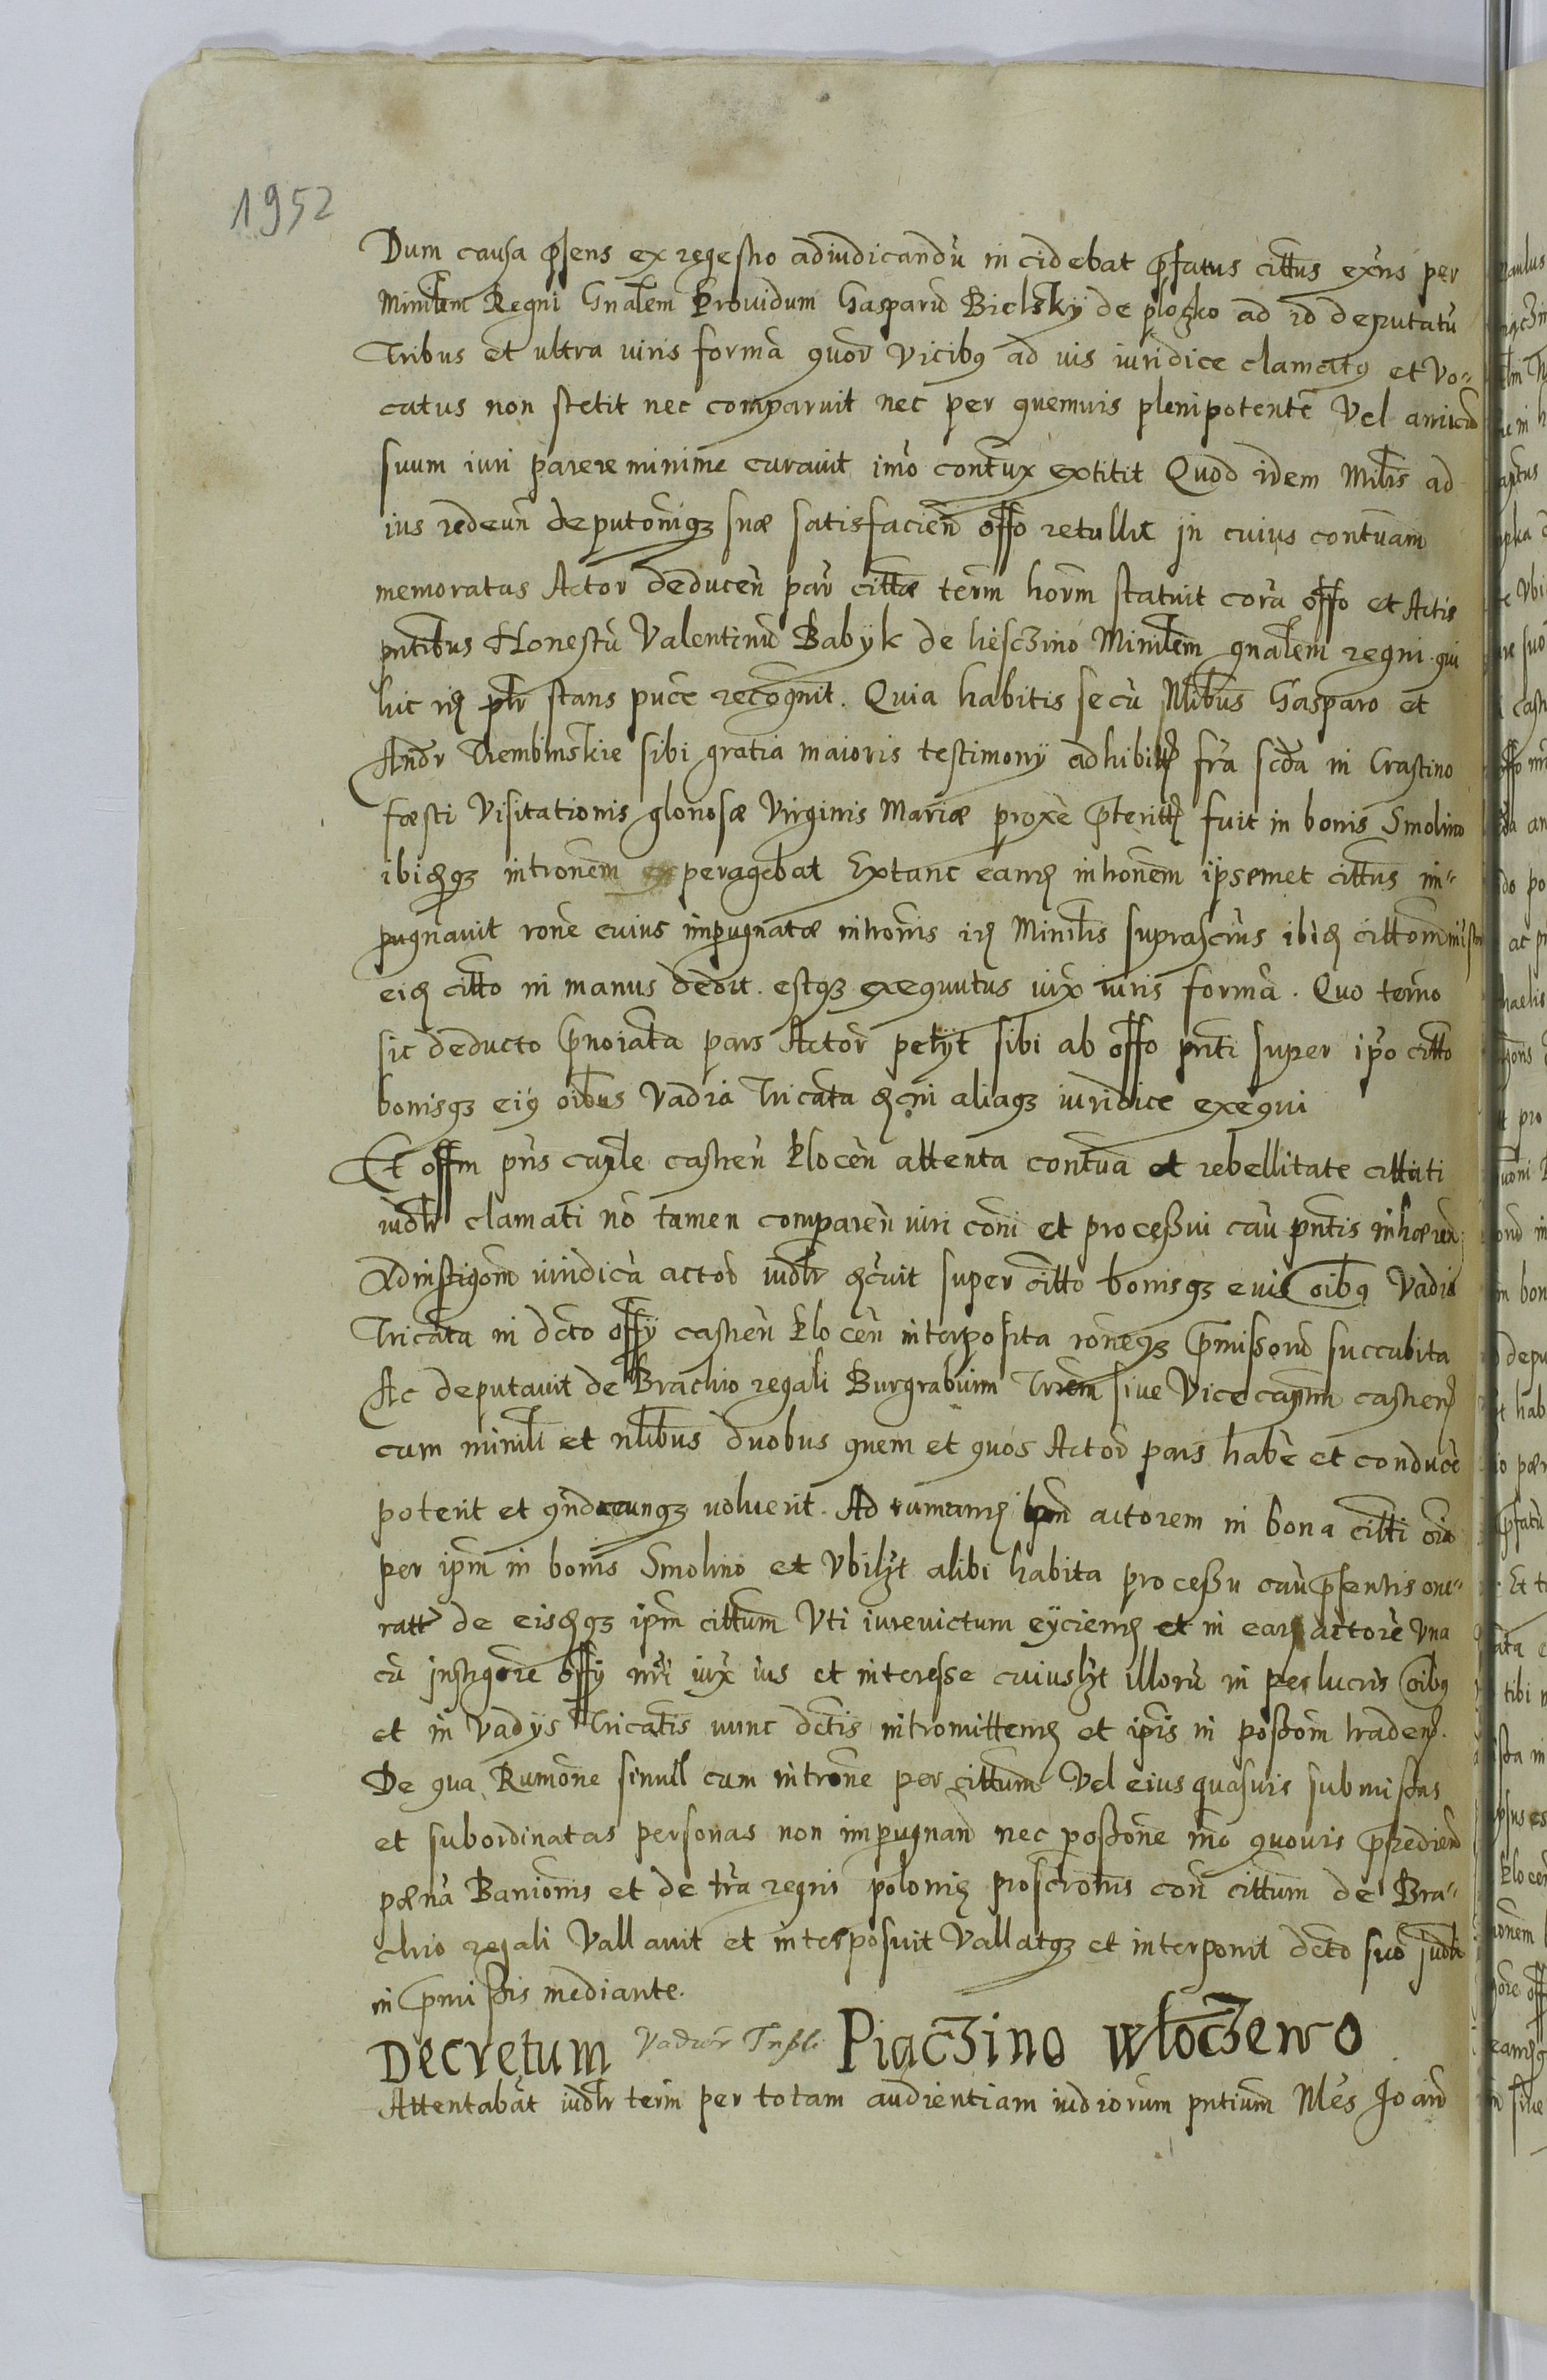 1952
Dum causa pñsens ex regestro adiudicandũ incidebat pfatus cittus exñs per
Minilem Regni Gnalem Prouidum Gasparũ Bielsky de plogko ad id deputatũ
Tribus et ultra uiris formã quor vicibus ad ius iuridice clamatus et vo-
catus non stetit nec comparuit nec per quemuis plenipotentẽ vel amicũ
suum iuri parere minime curauit imo contux extitit Quod idem Milis ad
ius redeuñ deputoniqz suæ satisfacieñ offo retullit in cuius contuam
memoratus Actor deduceñ par cittæ term horm statuit corã offo et Actis
pntibus Honestũ Valentinũ Babyk de Liesczino Minilem gnalem regni qui
hic id ptr stans puce recognit. Quia habitis secũ Nlibus Gasparo et
Andr Trembinskie sibi gratia maioris testimony adhibitis fra scda in Crastino
fæsti Visitationis gloriosæ Virginis Mariæ proxe pteritt fuit in bonis Smolino
ibidqz intronem peragebat Extanc eamd intronem ipsemet cittus im-
pugnauit rone cuius impugnatæ intronis id Minilis suprascrius ibid
eid citto in manus dedit. estqz exequutus iux iuris formã. Quo termo
sic deducto pnoiata pars Actor petyt sibi ab offo pnti super ipo citto
bonisqz eius oibus vadia Tricata dcni aliaqz iuridice exequi
Et offm pñs caple castreñ plocen attenta contua et rebellitate cittati
iudtr clamati no tamen compareñ iuri coni et processui cau pntis inhæren
Ad instigom iuridicã actor iudtr dcuit super citto bonisqz euis oibus vadia
Tricata in dcto offy castreñ plocen interposita roneqz pmissorũ succubita
Ac deputauit de Brachio regali Burgrabium Trrem siue Vicecaptm castren
cum minili et nlibus duobus quem et quos Actor pars habe et conduce
poterit et qndocunqz voluerit. Ad rumand ipm actorem in bona citti oia
per ipm in bonis Smolino et vbilzt alibi habita processu cau psentis one-
ratt de eisdqz ipm cittum Vti iurevictum eyciend et in ead actore vna
cũ instigore offy nri iux ius et interesse cuiuslzt illorũ in perlucris oibus
et in vadys Tricatis nunc dctis intromittend et ipis in possom traden.
De qua Rumone simul cum introne per cittum Vel eius quasuis submissas
et subordinatas personas non impugnan nec possone imo quouis predien
pænã Banionis et de tra regni polonie proscronis con cittum de Bra-
chio regali Vallauit et interposuit Vallatqz et interponit dcto suo iudli
in pmissis mediante.
Decretum Vadior Tripli Piączino włoczewo
Attentabat iudtr term per totam audientiam iudiorum pntium Nles Joan